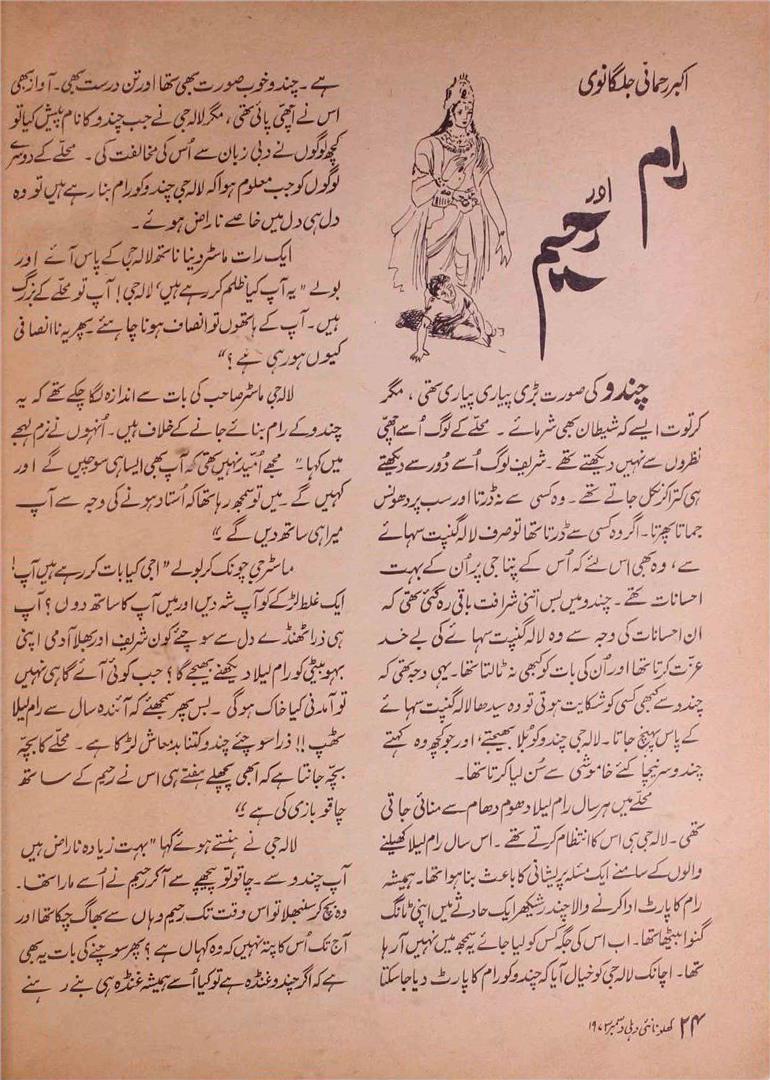 اکبر رحمانی جلگانوی
رام
اور
رحیم
چندو کی صورت بڑی پیاری پیاری تھی، مگر
کرتوت ایسے کہ شیطان بھی شرمائے۔ محلّے کے لوگ اُسے اچھی
نظروں سے نہیں دیکھتے تھے۔ شریف لوگ اُسے دُور سے دیکھتے
ہی کترا کر نکل جاتے تھے۔ وہ کسی سے نہ ڈرتا اور سب پر دھونس
جماتا پھرتا۔ اگر وہ کسی سے ڈرتا تھا تو صرف لالہ گنپت سہائے
سے، وہ بھی اس لئے کہ اُس کے پتا جی پر اُن کے بہت
احسانات تھے۔ چندو میں بس اتنی شرافت باقی رہ گئی تھی کہ
ان احسانات کی وجہ سے وہ لالہ گنپت سہائے کی بے حد
عزّت کرتا تھا اور اُن کی بات کو کبھی نہ ٹالتا تھا۔ یہی وجہ تھی کہ
چندو سے کبھی کسی کو شکایت ہوتی تو وہ سیدھا لالہ گنپت سہائے
کے پاس پہنچ جاتا۔ لالہ جی چندو کو بُلا بھیجتے، اور جو کچھ وہ کہتے
چندو سر نیچا کئے خاموشی سے سُن لیا کرتا تھا۔
محلّے میں ہر سال رام لیلا دھوم دھام سے منائی جاتی
تھی۔ لالہ جی ہی اس کا انتظام کرتے تھے۔ اس سال رام لیلا کھیلنے
والوں کے سامنے ایک مسئلہ پریشانی کا باعث بنا ہوا تھا۔ ہمیشہ
رام کا پارٹ ادا کرنے والا چندر شیکھر ایک حادثے میں اپنی ٹانگ
گنوا بیٹھا تھا۔ اب اس کی جگہ کس کو لیا جائے یہ سمجھ میں نہیں آ رہا
تھا۔ اچانک لالہ جی کو خیال آیا کہ چندو کو رام کا پارٹ دیا جا سکتا
ہے۔ چندو خوب صورت بھی تھا اور تن درست بھی۔ آواز بھی
اس نے اچھی پائی تھی، مگر لالہ جی نے جب چندو کا نام پیش کیا تو
کچھ لوگوں نے دبی زبان سے اُس کی مخالفت کی۔ محلّے کے دوسرے
لوگوں کو جب معلوم ہوا کہ لالہ جی چندو کو رام بنا رہے ہیں تو وہ
دل ہی دل میں خاصے ناراض ہوئے۔
ایک رات ماسٹر دینا ناتھ لالہ جی کے پاس آئے اور
بولے "یہ آپ کیا ظلم کر رہے ہیں، لالہ جی! آپ تو محلّے کے بزرگ
ہیں۔ آپ کے ہاتھوں تو انصاف ہونا چاہئے۔ پھر یہ ناانصافی
کیوں ہو رہی ہے؟"
لالہ جی ماسٹر صاحب کی بات سے اندازہ لگا چکے تھے کہ یہ
چندو کے رام بنائے جانے کے خلاف ہیں۔ اُنہوں نے نرم لہجے
میں کہا۔ "مجھے اُمّید نہیں تھی کہ آپ بھی ایسا ہی سوچیں گے اور
کہیں گے۔ میں تو سمجھ رہا تھا کہ اُستاد ہونے کی وجہ سے آپ
میرا ہی ساتھ دیں گے۔"
ماسٹر جی چونک کر بولے "اجی کیا بات کر رہے ہیں آپ!
ایک غلط لڑکے کو آپ شہ دیں اور میں آپ کا ساتھ دوں؟ آپ
ہی ذرا ٹھنڈے دل سے سوچئے کون شریف اور بھلا آدمی اپنی
بہو بیٹی کو رام لیلا دیکھنے بھیجے گا؟ جب کوئی آئے گا ہی نہیں
تو آمدنی کیا خاک ہوگی۔ بس پھر سمجھئے کہ آئندہ سال سے رام لیلا
ٹھپ!! ذرا سوچئے چندو کتنا بدمعاش لڑکا ہے۔ محلّے کا بچّہ
بچّہ جانتا ہے کہ ابھی پچھلے ہفتے ہی اس نے رحیم کے ساتھ
چاقو بازی کی ہے۔"
لالہ جی نے ہنستے ہوئے کہا "بہت زیادہ ناراض ہیں
آپ چندو سے۔ چاقو تو پیچھے سے آ کر رحیم نے اُسے مارا تھا۔
وہ بچ کر سنبھلا تو اس وقت تک رحیم وہاں سے بھاگ چکا تھا اور
آج تک اُس کا پتہ نہیں کہ وہ کہاں ہے؟ پھر سوچنے کی بات یہ بھی
ہے کہ اگر چندو غنڈہ ہے تو کیا اُسے ہمیشہ غنڈہ ہی بنے رہنے
۲۴ کھلونا نئی دہلی دسمبر ۱۹۷۳